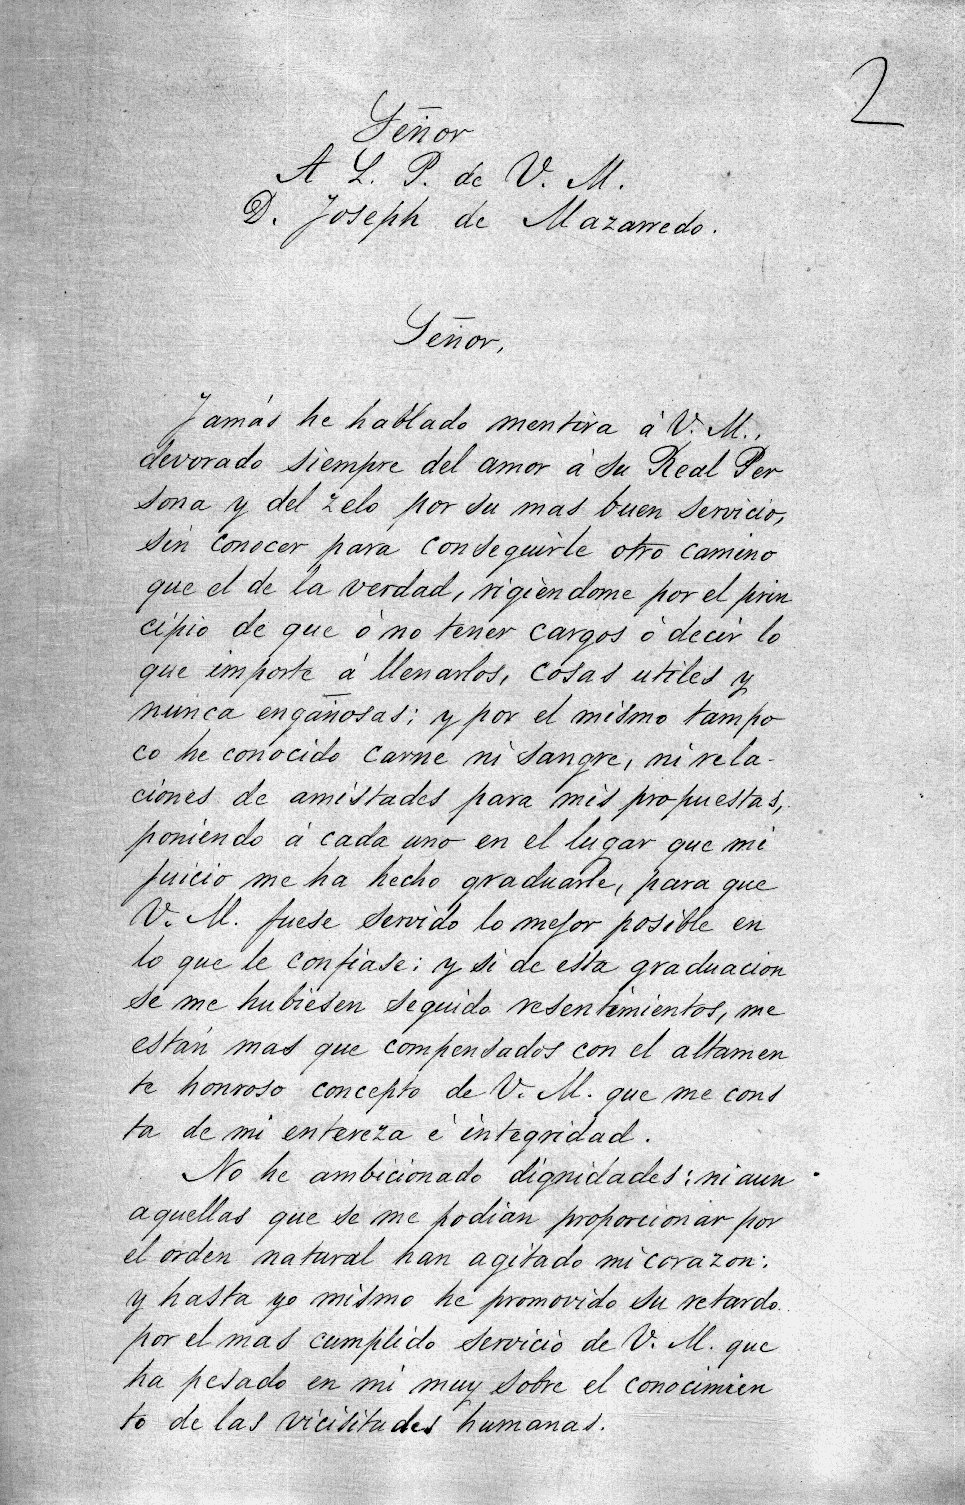 2
Señor
A L. P. de V. M.
D. Joseph de Mazarredo.
Señor,
Jamás he hablado mentira á V. M.,
devorado siempre del amor á su Real Per
sona y del zelo por su mas buen servicio,
sin conocer para conseguirle otro camino
que el de la verdad, rigiendome por el prin
cipio de que ó no tener cargos ó decir lo
que importe á llenarlos, cosas utiles y
nunca engañosas; y por el mismo tampo
co he conocido carne ni sangre, ni rela-
ciones de amistades para mis propuestas,
poniendo á cada uno en el lugar que mi
juicio me ha hecho graduarle, para que
V. M. fuese servido lo mejor posible en
lo que le confiase; y si de esta graduacion
se me hubiesen seguido resentimientos, me
están mas que compensados con el altamen
te honroso concepto de V. M. que me cons
ta de mi entereza é integridad.
No he ambicionado dignidades; ni aun
aquellas que se me podian proporcionar por
el orden natural han agitado mi corazon;
y hasta yo mismo he promovido su retardo
por el mas cumplido servicio de V. M. que
ha pesado en mi muy sobre el conocimien
to de las vicisitudes humanas.